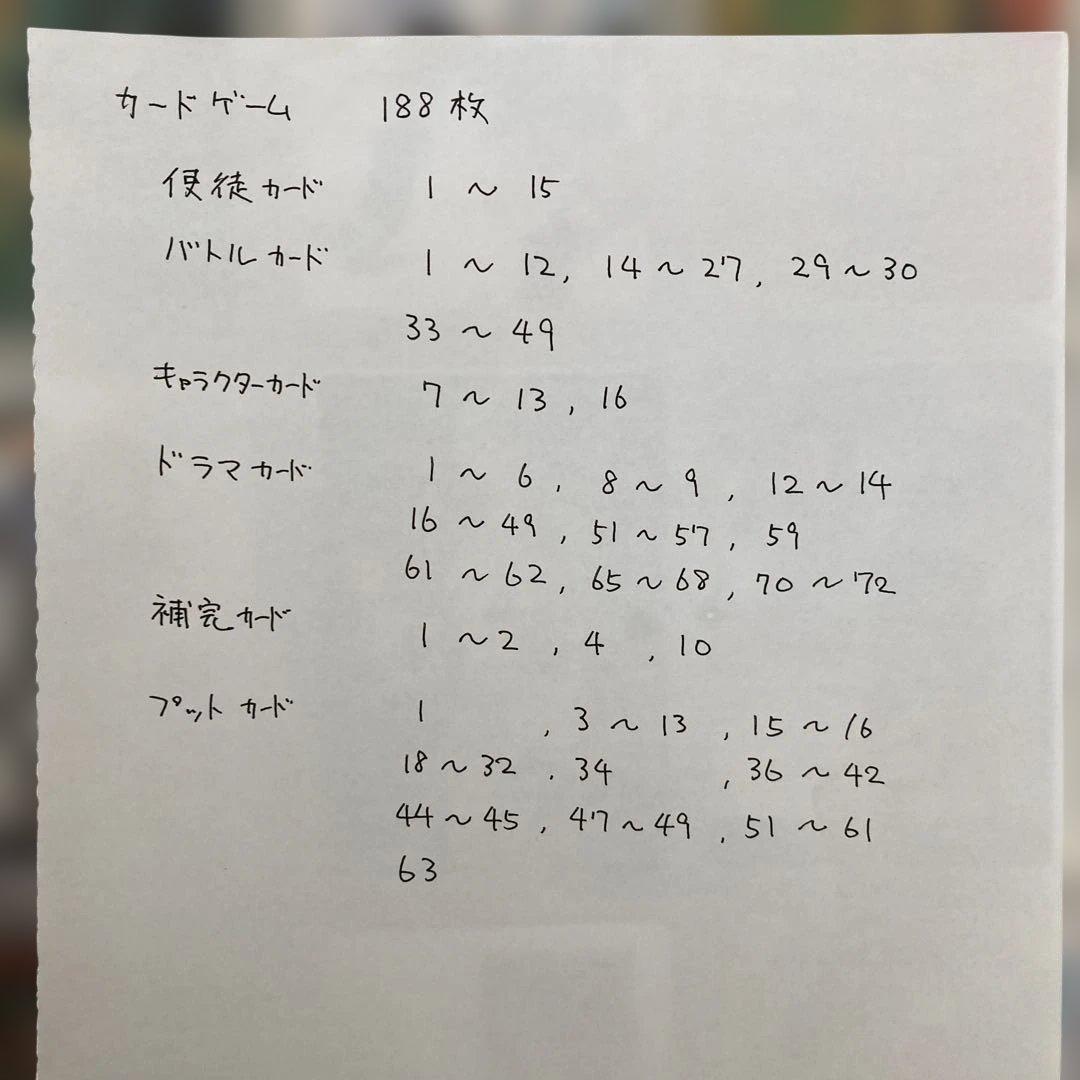 カードゲーム 188枚
使徒カード 1 ~ 15
バトルカード 1 ~ 12, 14 ~ 27, 29 ~ 30
33 ~ 49
キャラクターカード 7 ~ 13, 16
ドラマカード 1 ~ 6, 8 ~ 9, 12 ~ 14
16 ~ 49, 51 ~ 57, 59
61 ~ 62, 65 ~ 68, 70 ~ 72
補完カード 1 ~ 2, 4, 10
プットカード 1, 3 ~ 13, 15 ~ 16
18 ~ 32, 34, 36 ~ 42
44 ~ 45, 47 ~ 49, 51 ~ 61
63